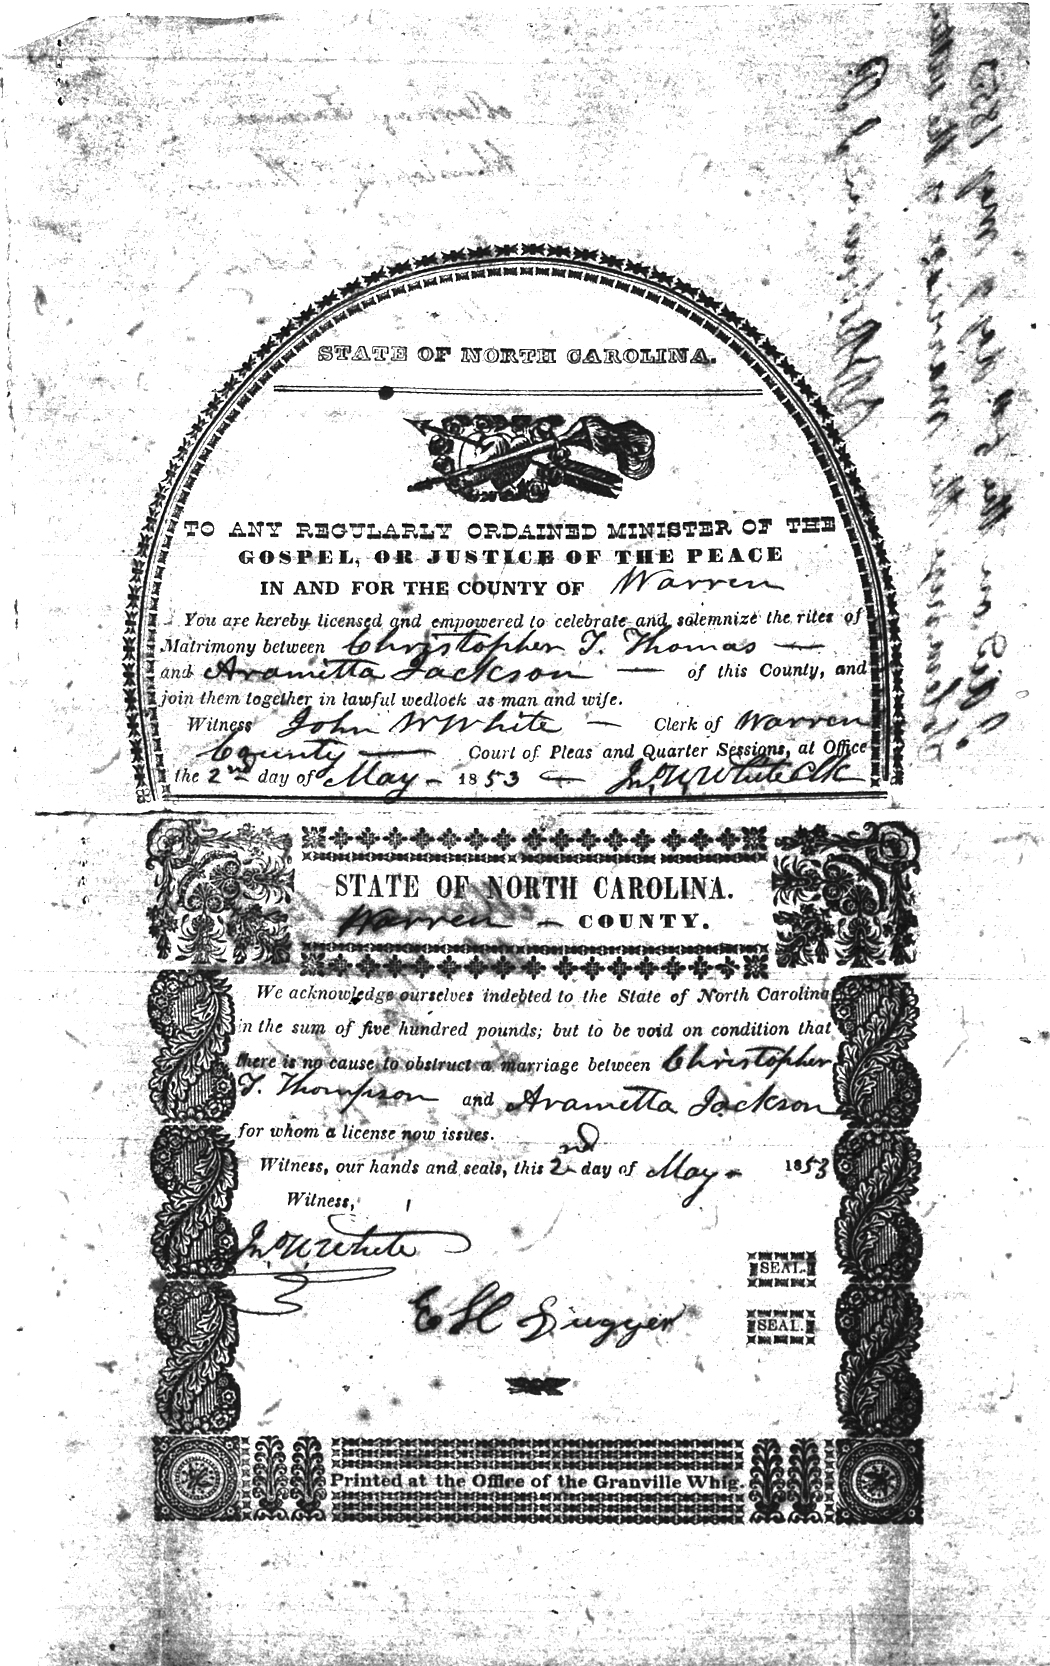 STATE OF NORTH CAROLINA.
TO ANY REGULARLY ORDAINED MINISTER OF THE
GOSPEL, OR JUSTICE OF THE PEACE
IN AND FOR THE COUNTY OF Warren
You are hereby licensed and empowered to celebrate and solemnize the rites of
Matrimony between Christopher T. Thomas —
and Aramitta Jackson — of this County, and
join them together in lawful wedlock as man and wife.
Witness John W White — Clerk of Warren
County — Court of Pleas and Quarter Sessions, at Office
the 2nd day of May - 1853 — Jno. W. White Clk
STATE OF NORTH CAROLINA.
Warren — COUNTY.
We acknowledge ourselves indebted to the State of North Carolina
in the sum of five hundred pounds; but to be void on condition that
there is no cause to obstruct a marriage between Christopher
T. Thompson and Arametta Jackson
for whom a license now issues.
Witness, our hands and seals, this 2nd day of May - 1853
Witness,
Jno W White
SEAL.
E H Dugger
SEAL.
Printed at the Office of the Granville Whig.